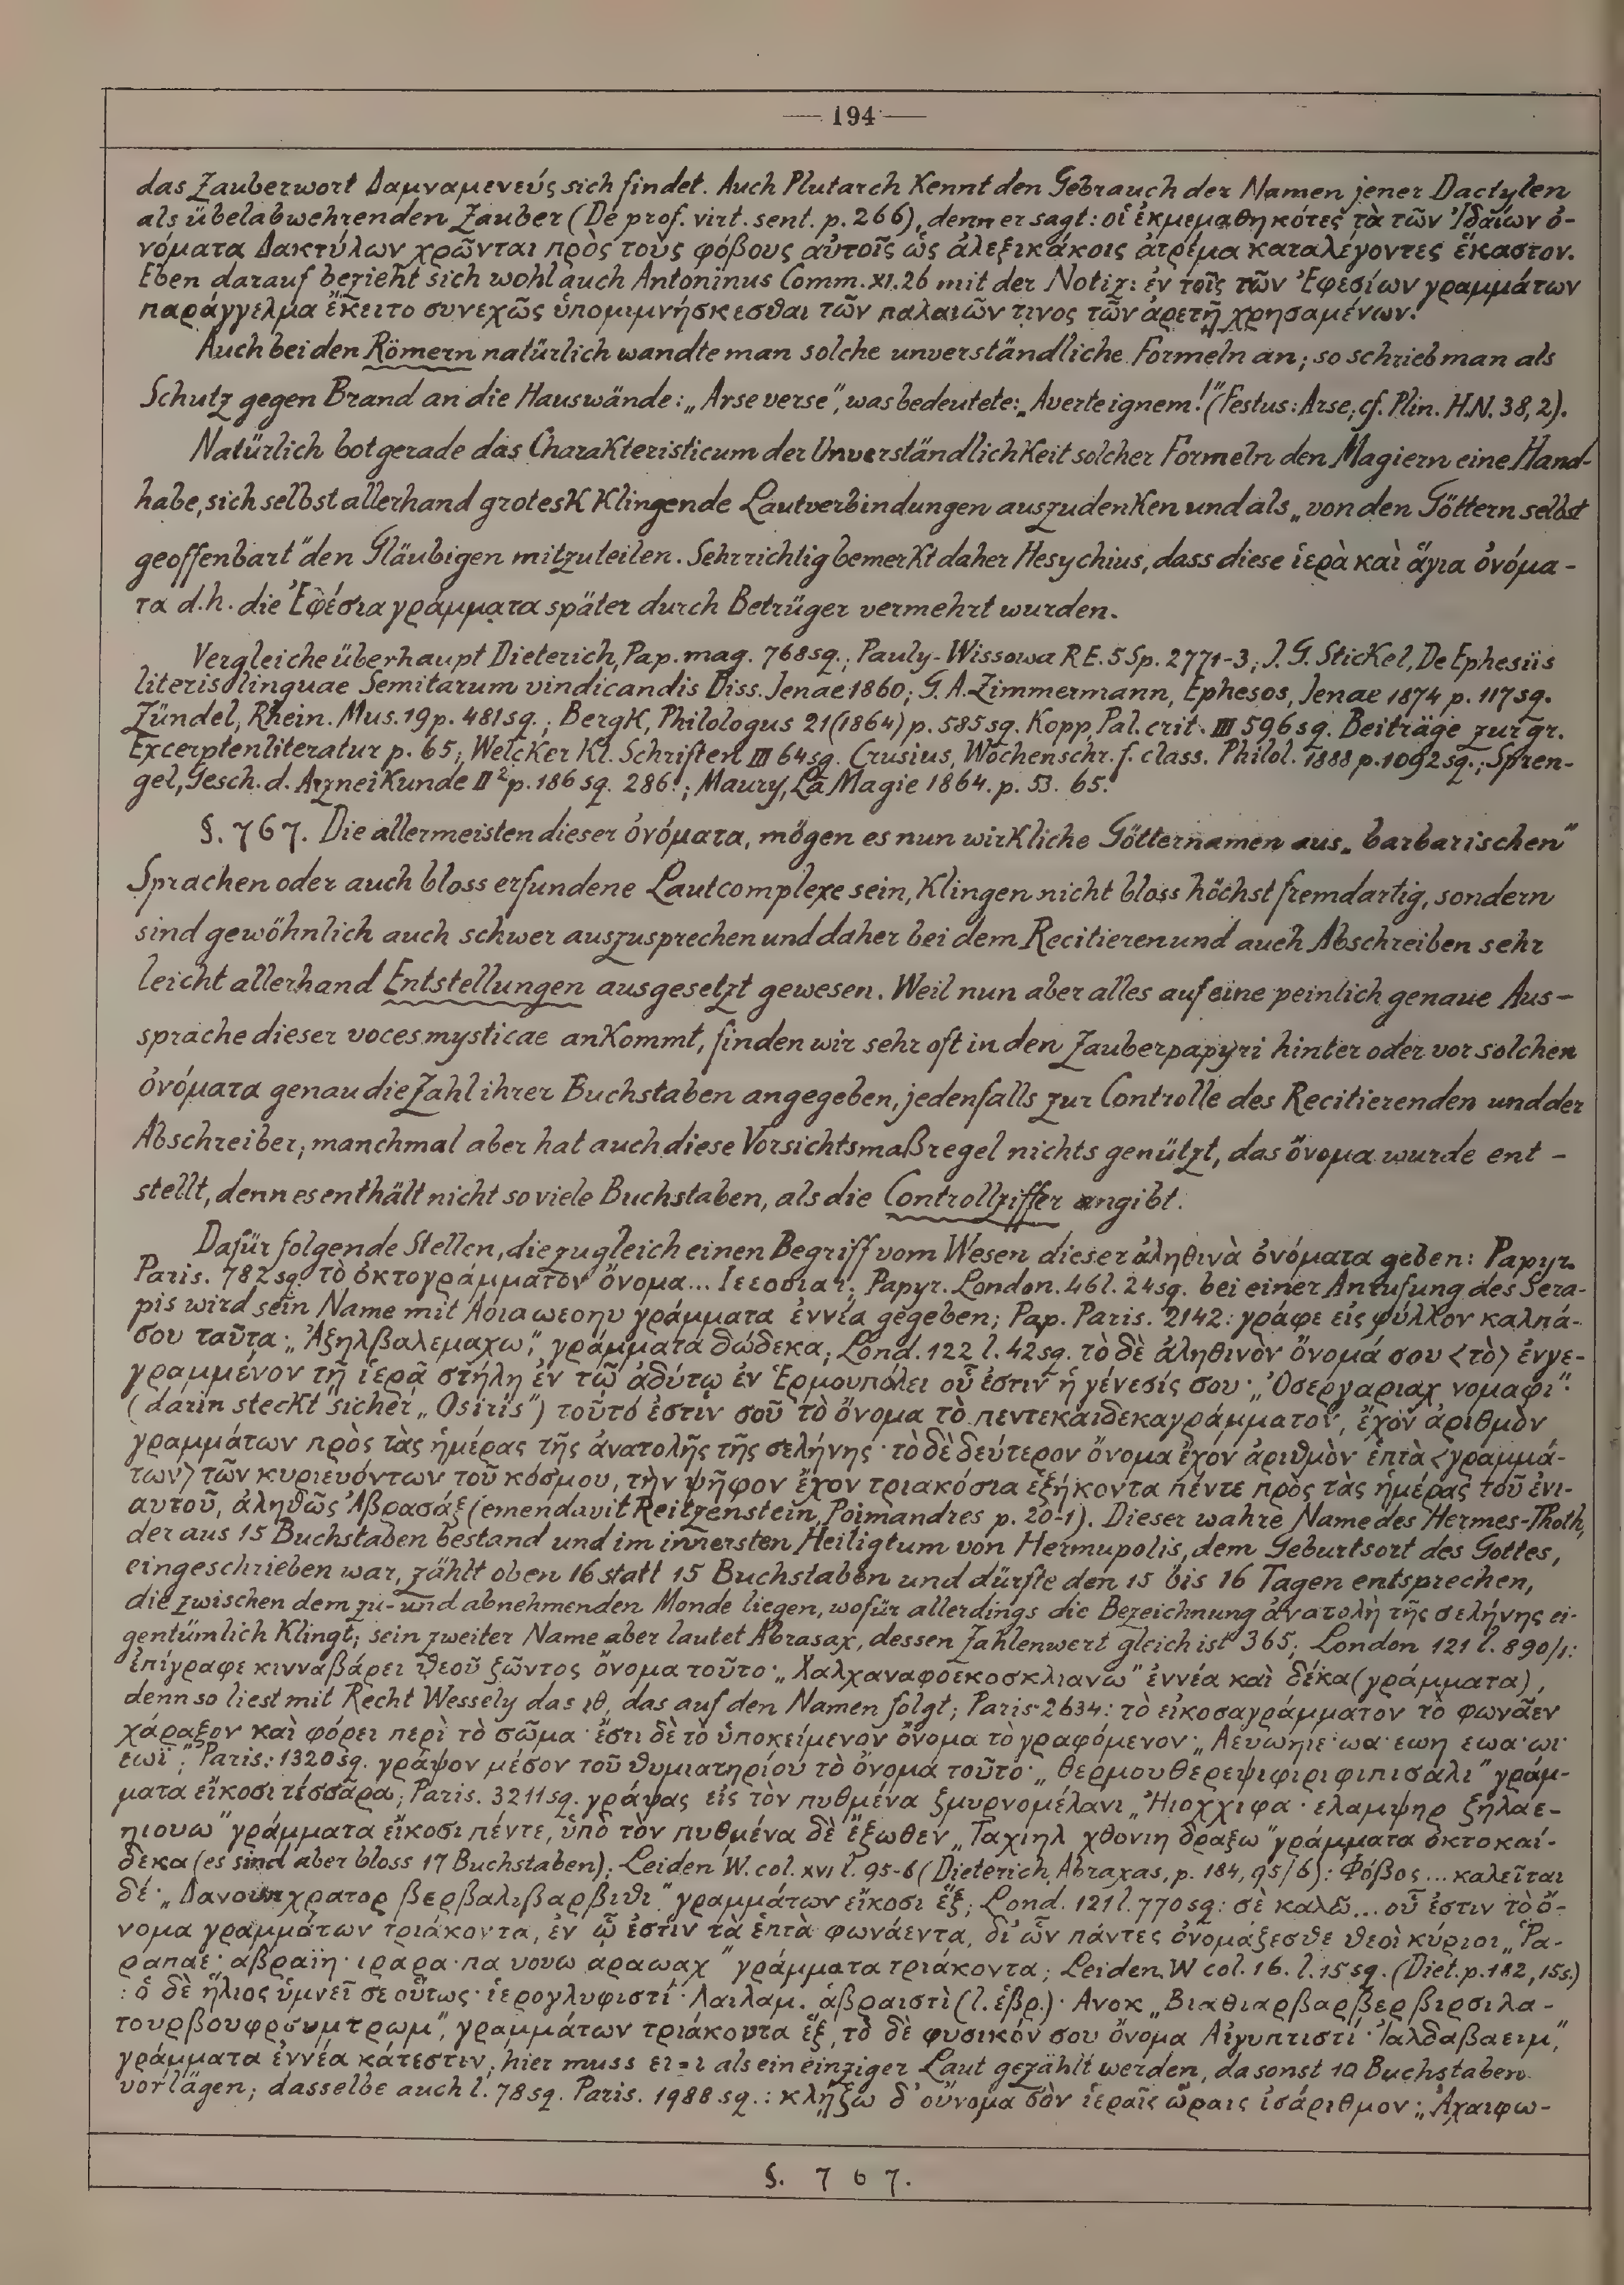 — 194 —
das Zauberwort Δαμναμενεύς sich findet. Auch Plutarch kennt den Gebrauch der Namen jener Dactylen
als übelabwehrenden Zauber (De prof. virt. sent. p. 266), denn er sagt: οἱ ἐκμεμαθηκότες τὰ τῶν Ἰδαίων ὀ-
νόματα Δακτύλων χρῶνται πρὸς τοὺς φόβους αὐτοῖς ὡς ἀλεξικάκοις ἀτρέμα καταλέγοντες ἕκαστον.
Eben darauf bezieht sich wohl auch Antoninus Comm. XI. 26 mit der Notiz: ἐν τοῖς τῶν Ἐφεσίων γραμμάτων
παράγγελμα ἔκειτο συνεχῶς ὑπομιμνήσκεσθαι τῶν παλαιῶν τινος τῶν ἀρετῇ χρησαμένων.
Auch bei den Römern natürlich wandte man solche unverständliche Formeln an; so schrieb man als
Schutz gegen Brand an die Hauswände: „Arse verse", was bedeutete: „Averte ignem!" (Festus: Arse; cf. Plin. H.N. 38, 2).
Natürlich bot gerade das Charakteristicum der Unverständlichkeit solcher Formeln den Magiern eine Hand-
habe, sich selbst allerhand grotesk klingende Lautverbindungen auszudenken und als „von den Göttern selbst
geoffenbart" den Gläubigen mitzuteilen. Sehr richtig bemerkt daher Hesychius, dass diese ἱερὰ καὶ ἅγια ὀνόμα-
τα d.h. die Ἐφέσια γράμματα später durch Betrüger vermehrt wurden.
Vergleiche überhaupt Dieterich, Pap. mag. 768 sq.; Pauly-Wissowa R E. 5 Sp. 2771-3; J. G. Stickel, De Ephesiis
literis linguae Semitarum vindicandis Diss. Jenae 1860; G. A. Zimmermann, Ephesos, Jenae 1874 p. 117 sq.
Zündel, Rhein. Mus. 19 p. 481 sq.; Bergk, Philologus 21 (1864) p. 585 sq. Kopp, Pal. crit. III 596 sq. Beiträge zur gr.
Excerptenliteratur p. 65; Welcker Kl. Schriften III 64 sq. Crusius, Wochenschr. f. class. Philol. 1888 p. 1092 sq.; Spren-
gel, Gesch. d. Arzneikunde II² p. 186 sq. 286.; Maury, La Magie 1864. p. 53. 65.
§. 767. Die allermeisten dieser ὀνόματα, mögen es nun wirkliche Götternamen aus „barbarischen"
Sprachen oder auch bloss erfundene Lautcomplexe sein, klingen nicht bloss höchst fremdartig, sondern
sind gewöhnlich auch schwer auszusprechen und daher bei dem Recitieren und auch Abschreiben sehr
leicht allerhand Entstellungen ausgesetzt gewesen. Weil nun aber alles auf eine peinlich genaue Aus-
sprache dieser voces mysticae ankommt, finden wir sehr oft in den Zauberpapyri hinter oder vor solchen
ὀνόματα genau die Zahl ihrer Buchstaben angegeben, jedenfalls zur Controlle des Recitierenden und der
Abschreiber; manchmal aber hat auch diese Vorsichtsmaßregel nichts genützt, das ὄνομα wurde ent-
stellt, denn es enthält nicht so viele Buchstaben, als die Controllziffer angibt.
Dafür folgende Stellen, die zugleich einen Begriff vom Wesen dieser ἀληθινὰ ὀνόματα geben: Papyr.
Paris. 782 sq. τὸ ὀκτογράμματον ὄνομα... Ιεεοσιαϊ; Papyr. London. 46 l. 24 sq. bei einer Anrufung des Sera-
pis wird sein Name mit Αοιαωεοηυ γράμματα ἐννέα gegeben; Pap. Paris. 2142: γράφε εἰς φύλλον καλπά-
σου ταῦτα· „Ἀξηλβαλεμαχω", γράμματα δώδεκα; Lond. 122 l. 42 sq. τὸ δὲ ἀληθινὸν ὄνομά σου <τὸ> ἐνγε-
γραμμένον τῇ ἱερᾷ στήλῃ ἐν τῷ ἀδύτῳ ἐν Ἑρμουπόλει οὗ ἐστιν ἡ γένεσίς σου· „Ὀσεργαριαχ νομαφι".
(darin steckt sicher „Osiris") τοῦτό ἐστίν σοῦ τὸ ὄνομα τὸ πεντεκαιδεκαγράμματον, ἔχον ἀριθμὸν
γραμμάτων πρὸς τὰς ἡμέρας τῆς ἀνατολῆς τῆς σελήνης· τὸ δὲ δεύτερον ὄνομα ἔχον ἀριθμὸν ἑπτὰ <γραμμά-
των> τῶν κυριευόντων τοῦ κόσμου, τὴν ψῆφον ἔχον τριακόσια ἑξήκοντα πέντε πρὸς τὰς ἡμέρας τοῦ ἐνι-
αυτοῦ, ἀληθῶς Ἀβρασάξ (emendavit Reitzenstein, Poimandres p. 20-1). Dieser wahre Name des Hermes-Thoth,
der aus 15 Buchstaben bestand und im innersten Heiligtum von Hermupolis, dem Geburtsort des Gottes,
eingeschrieben war, zählt oben 16 statt 15 Buchstaben und dürfte den 15 bis 16 Tagen entsprechen,
die zwischen dem zu- und abnehmenden Monde liegen, wofür allerdings die Bezeichnung ἀνατολὴ τῆς σελήνης ei-
gentümlich klingt; sein zweiter Name aber lautet Abrasax, dessen Zahlenwert gleich ist 365; London 121 l. 890/1:
ἐπίγραφε κινναβάρει θεοῦ ζῶντος ὄνομα τοῦτο· „Χαλχαναφοεκοσκλιανω" ἐννέα καὶ δέκα (γράμματα),
denn so liest mit Recht Wessely das ιθ, das auf den Namen folgt; Paris 2634: τὸ εἰκοσαγράμματον τὸ φωνᾶεν
χάραξον καὶ φόρει περὶ τὸ σῶμα· ἔστι δὲ τὸ ὑποκείμενον ὄνομα τὸ γραφόμενον· „Αευωηιε·ωα·εωη εωα·ωι·
εωϊ"; Paris.: 1320 sq. γράψον μέσον τοῦ θυμιατηρίου τὸ ὄνομα τοῦτο· „θερμουθερεψιφιριφιπισαλι" γράμ-
ματα εἴκοσι τέσσαρα; Paris. 3211 sq. γράψας εἰς τὸν πυθμένα ζμυρνομέλανι „Ἠιοχχιφα· ελαμψηρ ζηλαε-
ηιουω" γράμματα εἴκοσι πέντε, ὑπὸ τὸν πυθμένα δὲ ἔξωθεν „Ταχιηλ χθονιη δραξω" γράμματα ὀκτοκαί-
δεκα (es sind aber bloss 17 Buchstaben); Leiden W. col. XVI l. 95-6 (Dieterich, Abraxas, p. 184, 95/6): Φόβος... καλεῖται
δέ· χρατορ βερβαλιβαρβιθι" γραμμάτων εἴκοσι ἕξ; Lond. 121 l. 770 sq: σὲ καλῶ... οὗ ἐστιν τὸ ὄ-
νομα γραμμάτων τριάκοντα, ἐν ᾧ ἐστιν τὰ ἑπτὰ φωνάεντα, δι' ὧν πάντες ὀνομάζεσθε θεοὶ κύριοι „Ῥα-
ραπαε· ἀβραϊη· ιραρα·πα νουω αραωαχ" γράμματα τριάκοντα; Leiden. W col. 16. l. 15 sq. (Diet. p. 182, 15s.)
: ὁ δὲ ἥλιος ὑμνεῖ σε οὕτως· ἱερογλυφιστί· Λαιλάμ. ἁβραιστὶ (l. ἑβρ.)· Ανοκ „Βιαθιαρβαρβερβιρσιλα-
τουρβουφρουμτρωμ", γραμμάτων τριάκοντα ἕξ, τὸ δὲ φυσικόν σου ὄνομα Αἰγυπτιστί· Ἰαλδαβαειμ",
γράμματα ἐννέα κάτεστιν; hier muss ει = ι als ein einziger Laut gezählt werden, da sonst 10 Buchstaben
vorlägen; dasselbe auch l. 78 sq. Paris. 1988 sq.: κλῄζω δ' οὔνομα σὸν ἱεραῖς ὥραις ἰσάριθμον· „Ἀχαιφω-
§. 767.